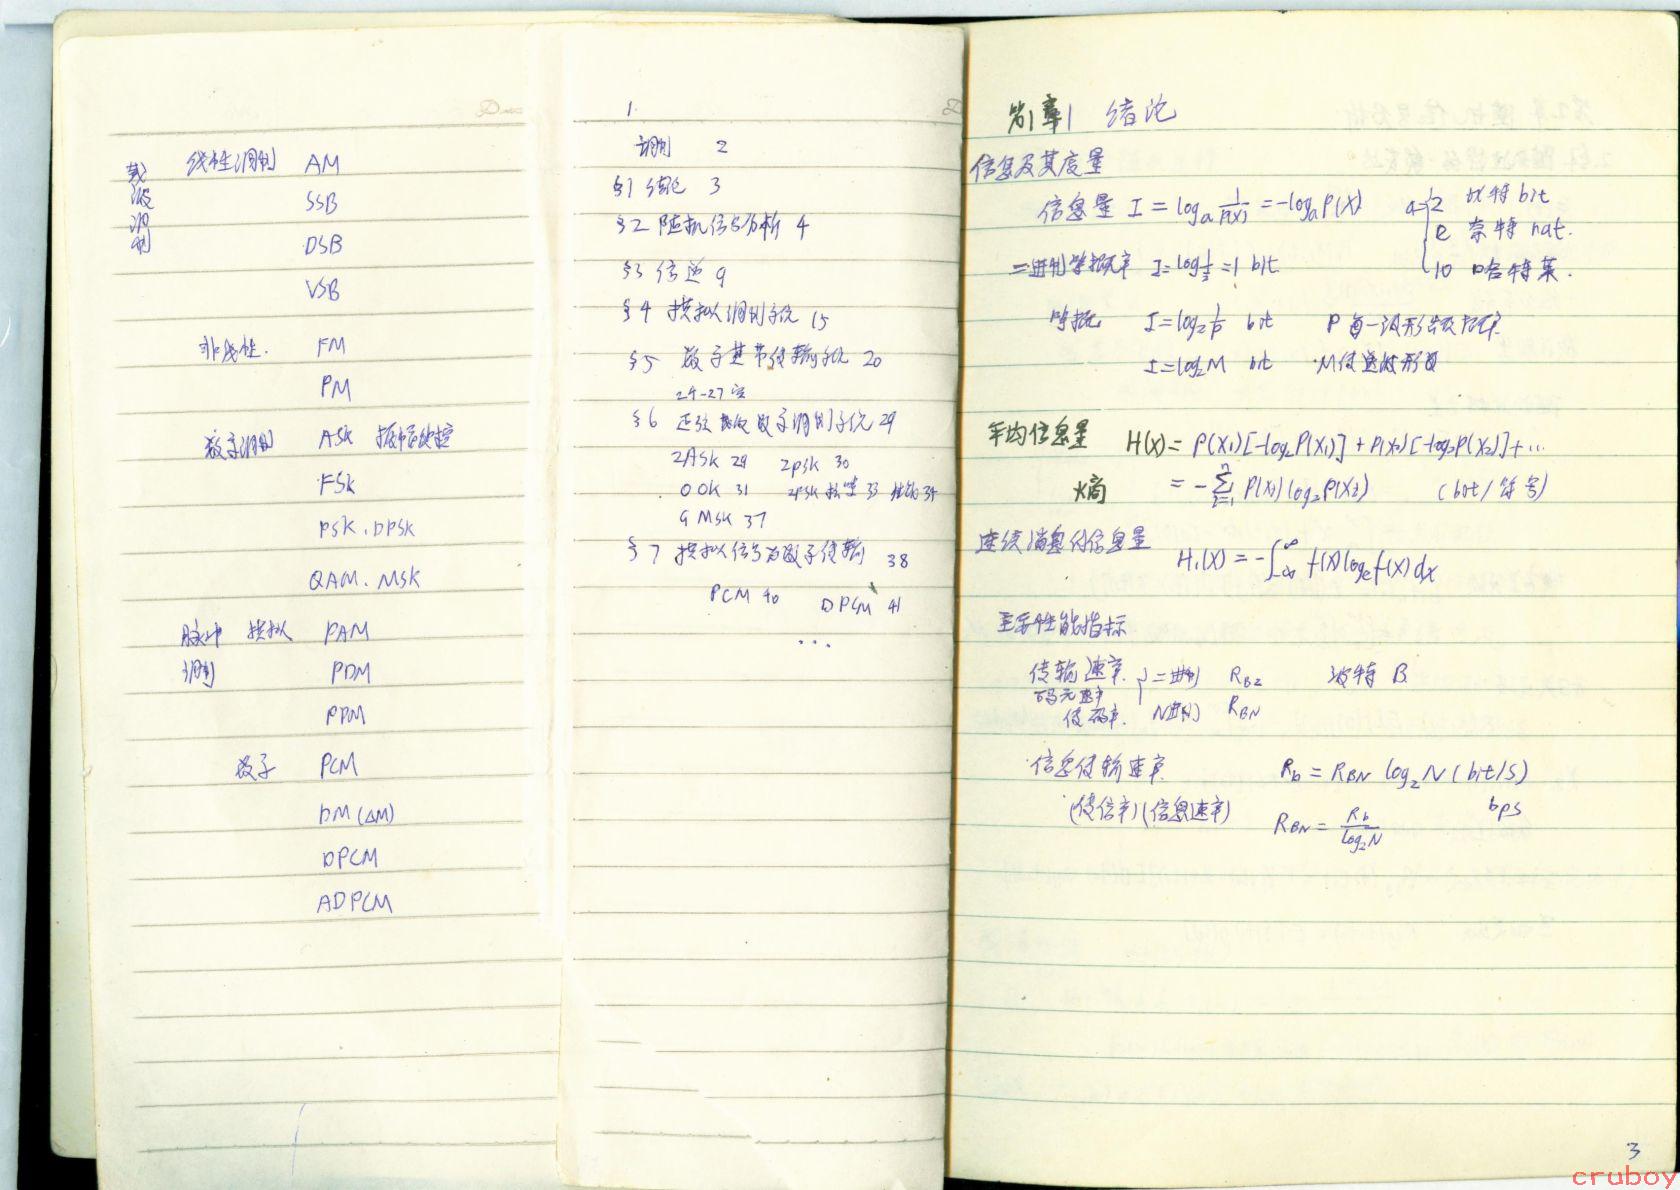 载波调制
线性调制 AM
SSB
DSB
VSB
非线性. FM
PM
数字调制 ASK 振幅键控
FSK
PSK、DPSK
QAM、MSK
脉冲调制 模拟 PAM
PDM
PPM
数字 PCM
DM(ΔM)
DPCM
ADPCM
1
调制 2
§1 绪论 3
§2 随机信号分析 4
§3 信道 9
§4 模拟调制系统 15
§5 数字基带传输系统 20
24-27
§6 正弦载波数字调制系统 29
2ASK 29 2PSK 30
OOK 31 2PSK 33 性能 34
GMSK 37
§7 模拟信号的数字传输 38
PCM 40 DPCM 41
...
第1章 绪论
信息及其度量
信息量 I = logₐ 1/P(x) = -logₐP(x) a 2 比特 bit
e 奈特 nat.
10 哈特莱.
二进制等概率 I = log₂ 1/½ = 1 bit
等概 I = log₂ 1/P bit P 每一波形出现概率
I = log₂M bit M 传送波形数
平均信息量 H(x) = P(x₁)[-log₂P(x₁)] + P(x₂)[-log₂P(x₂)] + …
熵 = -Σⁿᵢ₌₁ P(xᵢ) log₂P(xᵢ) (bit/符号)
连续消息的信息量 H₁(x) = -∫^∞_-∞ f(x) logₑ f(x) dx
主要性能指标
传输速率 二进制 R_B2 波特 B
码元速率
传码率. N进制 R_BN
信息传输速率 R_b = R_BN log₂N (bit/s)
(传信率)(信息速率) bps
R_BN = R_b / log₂N
3
cruboy